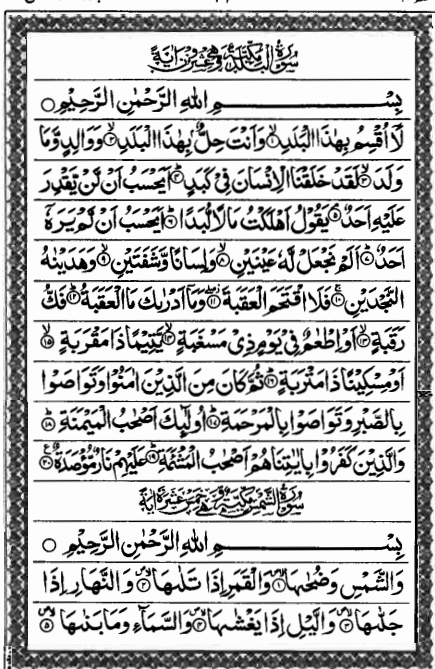 سُوْرَةُ الْبَلَدِ مَكِّيَّةٌ وَّهِيَ عِشْرُوْنَ اٰيَةً
بِسْــــــــمِ اللهِ الرَّحْمٰنِ الرَّحِيْمِ ○
لَاۤ اُقْسِمُ بِهٰذَا الْبَلَدِ ۙ﴿۱﴾ وَاَنْتَ حِلٌّۢ بِهٰذَا الْبَلَدِ ۙ﴿۲﴾ وَوَالِدٍ وَّمَا
وَلَدَ ۙ﴿۳﴾ لَقَدْ خَلَقْنَا الْاِنْسَانَ فِیْ كَبَدٍ ؕ﴿۴﴾ اَیَحْسَبُ اَنْ لَّنْ یَّقْدِرَ
عَلَیْهِ اَحَدٌ ۘ﴿۵﴾ یَقُوْلُ اَهْلَكْتُ مَالًا لُّبَدًا ؕ﴿۶﴾ اَیَحْسَبُ اَنْ لَّمْ یَرَهٗۤ
اَحَدٌ ؕ﴿۷﴾ اَلَمْ نَجْعَلْ لَّهٗ عَیْنَیْنِ ۙ﴿۸﴾ وَلِسَانًا وَّشَفَتَیْنِ ۙ﴿۹﴾ وَهَدَیْنٰهُ
النَّجْدَیْنِ ۚ﴿۱۰﴾ فَلَا اقْتَحَمَ الْعَقَبَةَ ۖ﴿۱۱﴾ وَمَاۤ اَدْرٰىكَ مَا الْعَقَبَةُ ؕ﴿۱۲﴾ فَكُّ
رَقَبَةٍ ۙ﴿۱۳﴾ اَوْ اِطْعٰمٌ فِیْ یَوْمٍ ذِیْ مَسْغَبَةٍ ۙ﴿۱۴﴾ یَّتِیْمًا ذَا مَقْرَبَةٍ ۙ﴿۱۵﴾
اَوْ مِسْكِیْنًا ذَا مَتْرَبَةٍ ؕ﴿۱۶﴾ ثُمَّ كَانَ مِنَ الَّذِیْنَ اٰمَنُوْا وَتَوَاصَوْا
بِالصَّبْرِ وَتَوَاصَوْا بِالْمَرْحَمَةِ ؕ﴿۱۷﴾ اُولٰٓئِكَ اَصْحٰبُ الْمَیْمَنَةِ ؕ﴿۱۸﴾
وَالَّذِیْنَ كَفَرُوْا بِاٰیٰتِنَا هُمْ اَصْحٰبُ الْمَشْـَٔمَةِ ؕ﴿۱۹﴾ عَلَیْهِمْ نَارٌ مُّؤْصَدَةٌ ﴿۲۰﴾
سُوْرَةُ الشَّمْسِ مَكِّيَّةٌ وَّهِيَ خَمْسَ عَشَرَةَ اٰيَةً
بِسْــــــــمِ اللهِ الرَّحْمٰنِ الرَّحِيْمِ ○
وَالشَّمْسِ وَضُحٰىهَا ۪ۙ﴿۱﴾ وَالْقَمَرِ اِذَا تَلٰىهَا ۪ۙ﴿۲﴾ وَالنَّهَارِ اِذَا
جَلّٰىهَا ۪ۙ﴿۳﴾ وَالَّیْلِ اِذَا یَغْشٰىهَا ۪ۙ﴿۴﴾ وَالسَّمَآءِ وَمَا بَنٰىهَا ۪ۙ﴿۵﴾